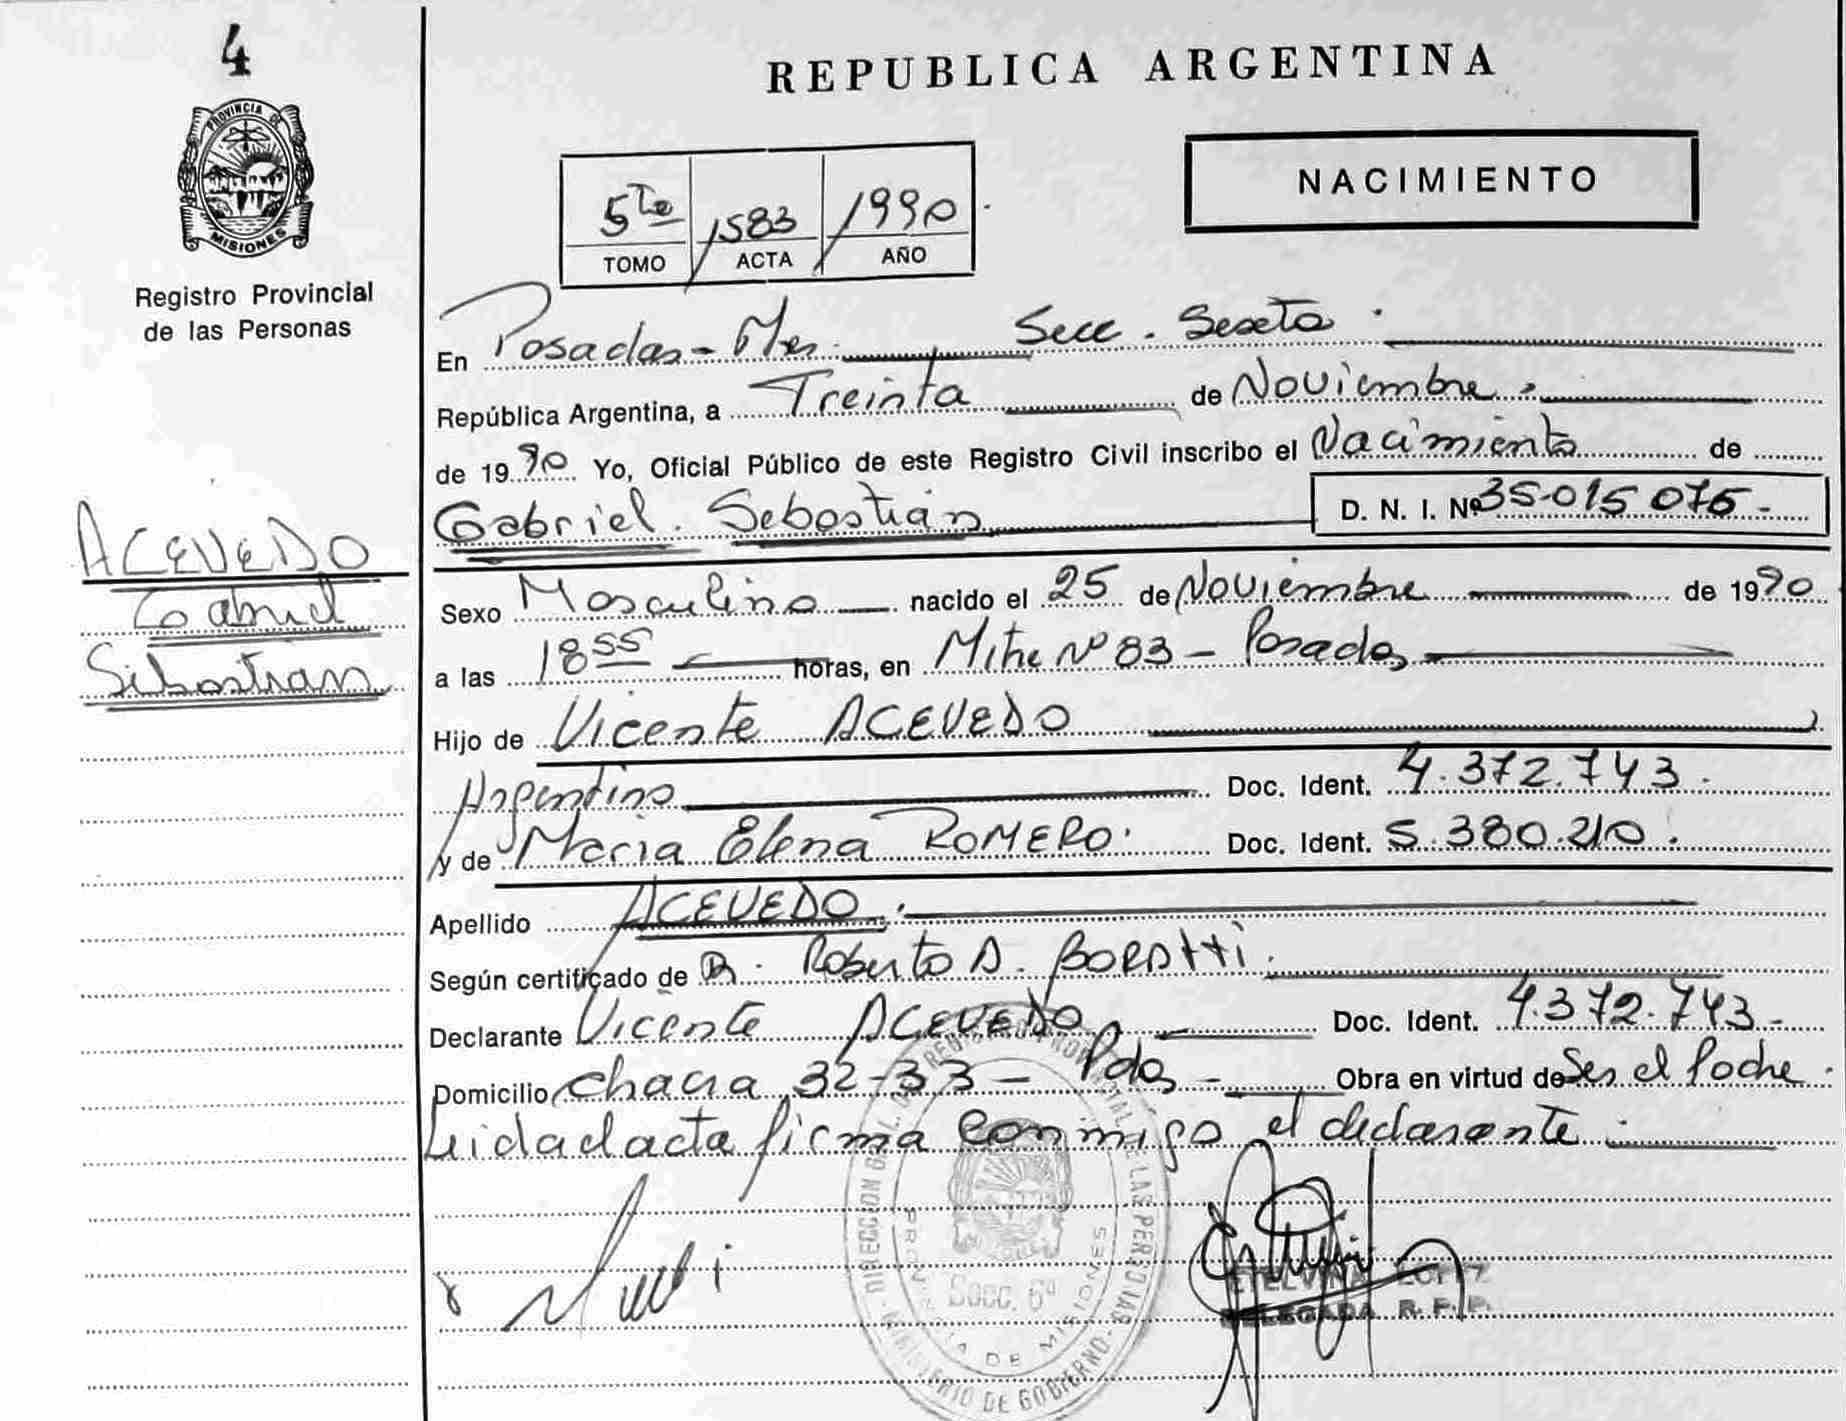 4
PROVINCIA DE
MISIONES
Registro Provincial
de las Personas
ACEVEDO
Gabriel
Sebastian
REPUBLICA ARGENTINA
NACIMIENTO
5to 1583 1990
TOMO ACTA AÑO
En Posadas - Mnes. Secc. Sexta.
República Argentina, a Treinta de Noviembre.
de 1990 Yo, Oficial Público de este Registro Civil inscribo el Nacimiento de
Gabriel Sebastián D. N. I. Nº 35.015.075.-
Sexo Masculino nacido el 25 de Noviembre de 1990
a las 18 55 horas, en Mitre Nº 83 - Posadas
Hijo de Vicente ACEVEDO
Argentino Doc. Ident. 4.372.743.
y de Maria Elena ROMERO. Doc. Ident. 5.380.210.
Apellido ACEVEDO.
Según certificado de Roberto A.
Declarante Vicente ACEVEDO Doc. Ident. 4.372.743.-
Domicilio chacra 32-33 - Pdas - Obra en virtud de Ser el Padre.
Leida el acta firma conmigo el declarante
DIRECCION GRAL. DEL REGISTRO PROVINCIAL DE LAS PERSONAS
MINISTERIO DE GOBIERNO
PROVINCIA DE MISIONES
Secc. 6ª
ETELVINA LOPEZ
DELEGADA R. P. P.